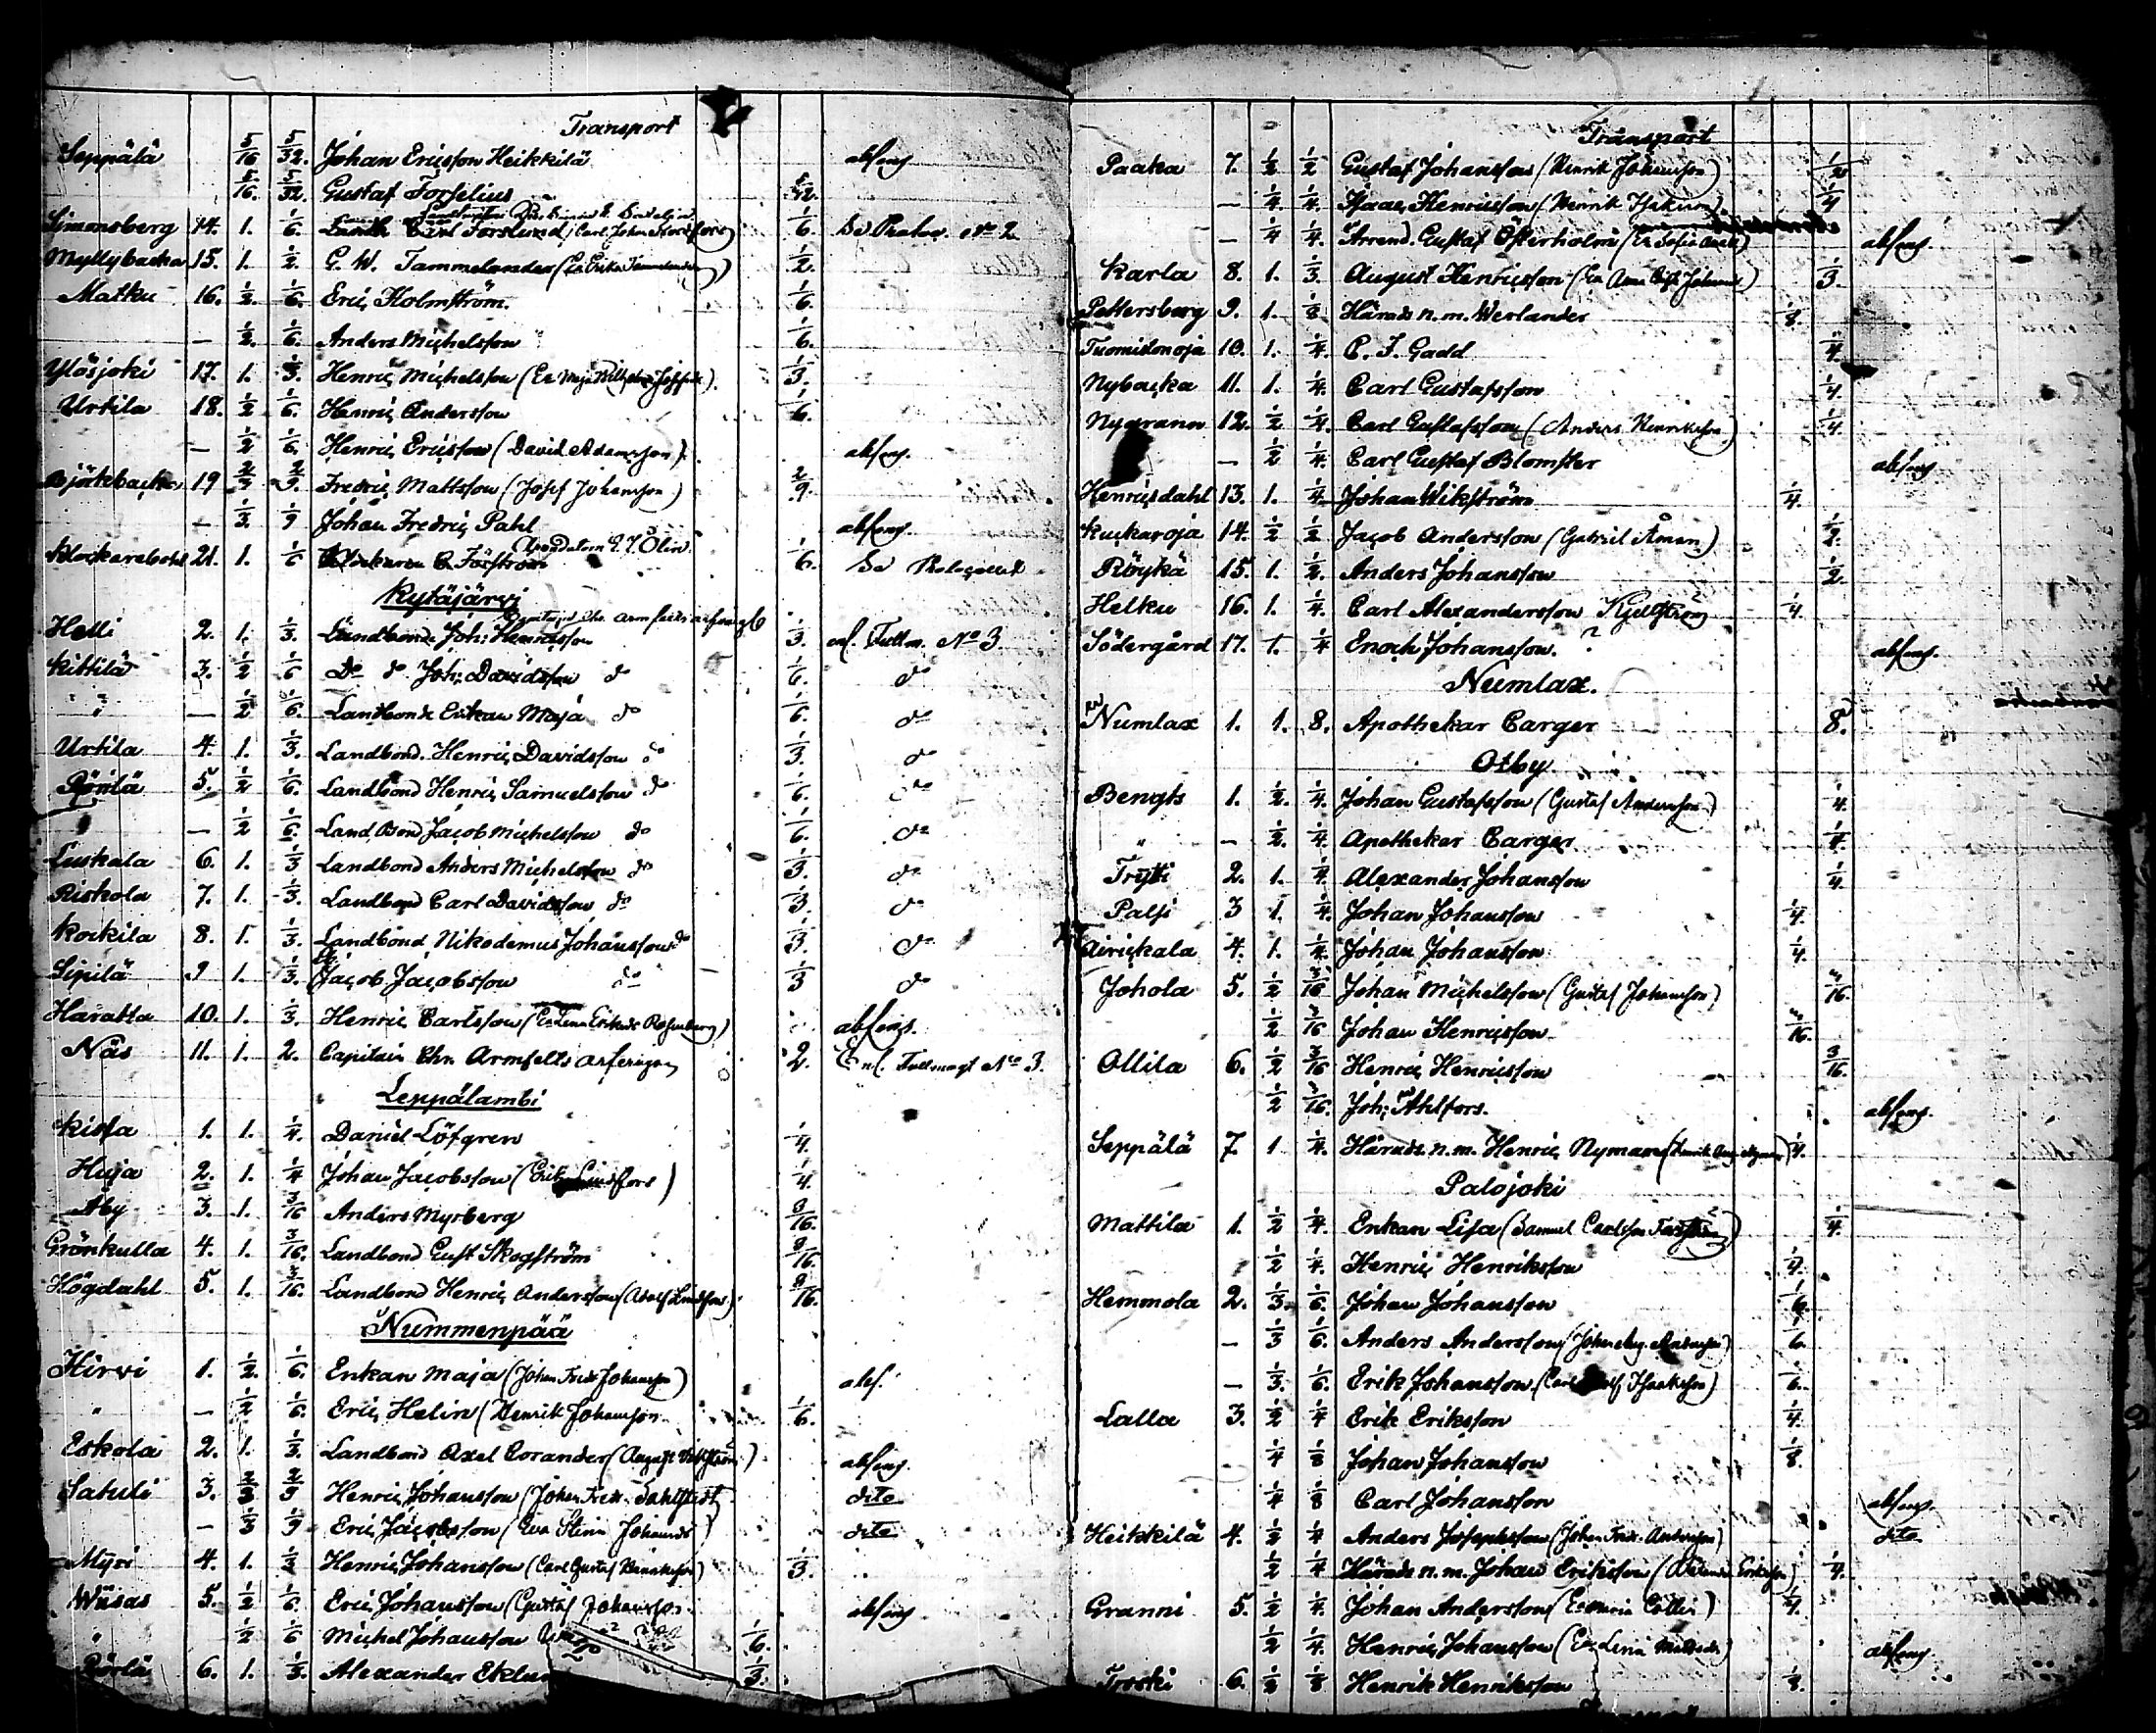 Transport
Seppälä 5/16 5/32. Johan Ericsson Heikkilä abseng.
5/16. 5/32. Gustaf Forselius 5/32.
Simonsberg 14. 1. 1/6. Carl Forslund (Carl John 1/6. Se No 2
Myllybacka 15. 1. 1/2. G. W. Tammelander (Erika Tammelander) 1/2.
Matku 16. 1/2. 1/6. Eric Holmström. 1/6.
— 1/2. 1/6. Anders Michelsson 1/6.
Ylösjoki 17. 1. 1/3. Henric Michelsson (Enk Maja 1/3.
Urtila 18. 1/2 1/6. Henric Andersson 1/6.
— 1/2 1/6. Henric Ericsson (David Adamsson). abseng.
Björkbacka 19 2/3 2/9. Fredric Mattsson (Josef Johansson) 2/9.
— 1/3. 1/9 Johan Fredric Pahl abseng.
Klockarebohl 21. 1. 1/6 Klockaren C. Förström Arendatorn E. J. Ölin 1/6. Se Protocollet
Kytäjärvi
Helli 2. 1. 1/3. Landbond Joh: Henricsson Capitain Chr. Armfelts arfvingb 1/3. enl. Fullm. No 3.
Kittilä 3. 1/2 1/6 Do do Joh: Davidsson do 1/6. do
" — 1/2 1/6. Landbonde Enkan Maja do 1/6. do
Urtila 4. 1. 1/3. Landbond. Henric Davidsson do 1/3. do
Pöntä 5. 1/2 1/6. Landbond Henric Samuelsson do 1/6. do
— 1/2 1/6. Land Bond Jacob Michelsson do 1/6. do
Luskala 6. 1. 1/3 Landbond Anders Michelsson do 1/3. do
Riskola 7. 1. 1/3. Landbond Carl Davidsson do 1/3. do
Korkila 8. 1. 1/3. Landbond Nikodemus Johansson do 1/3. do
Sipilä 9 1. 1/3. Jacob Jacobsson do 1/3 do
Haratta 10. 1. 1/3. Henric Carlsson (Enk Lena Eriksdr Rosenberg) abseng.
Näs 11. 1. 2. Capitain Chr. Armfelts arfvingar 2. Enl. Fullmagt No 3.
Leppälambi
Kissa 1. 1. 1/4. Daniel Löfgren 1/4.
Huja 2. 1. 1/4 Johan Jacobsson (Erik Lindfors) 1/4.
Åby 3. 1. 3/16 Anders Myrberg 3/16.
Grönkulla 4. 1. 3/16. Landbond Gust Skogström 3/16.
Högdahl 5. 1. 3/16. Landbond Henric Andersson (Adolf Lindfors) 3/16.
Nummenpää
Hirvi 1. 1/2. 1/6. Enkan Maja (Johan Fredr Johansson) abs.
" — 1/2 1/6. Eric Helin (Henrik Johansson 1/6.
Eskola 2. 1. 1/3. Landbond Axel Corander (August abseng.
Satuli 3. 2/3 2/9 Henric Johansson (Johan Fredr. Dahlstedt dito
— 1/3 1/9 Eric Jacobsson (Eva Stina Johansdr) dito
Myri 4. 1. 1/3 Henric Johansson (Carl Gustaf Henriksson) 1/3.
Wiisas 5. 1/2 1/6. Eric Johansson (Gustaf Johansson. abseng
" 1/2 1/6 Michel Johansson 1/6.
Pörlä 6. 1. 1/3. Alexander Eklun 1/3.
Transport
Paaka 7. 1/2 1/2 Gustaf Johansson (Henrik Johansson) 1/2
— 1/4 1/4. Isaac Henricsson (Henrik Isaksson) 1/4
— 1/4 1/4. Arrend. Gustaf Österholm (En Sofia abseng.
Karla 8. 1. 1/3 August Henricsson (En Anna 1/3.
Pettersberg 9. 1. 1/8 Härads n. m. Werlander 1/8.
Tuomistonoja 10. 1. 1/4. C. F. Gadd 1/4.
Nybacka 11. 1. 1/4. Carl Gustafsson 1/4.
Nygrann 12. 1/2 1/4. Carl Gustafsson (Anders Henriksson) 1/4.
— 1/2 1/4. Carl Gustaf Blomster abseng
Henricsdahl 13. 1. 1/4. Johan Wikström 1/4.
Kuckaroja 14. 1/2 1/2 Jacob Andersson (Gabriel Åman) 1/2.
Röykä 15. 1. 1/2. Anders Johansson 1/2
Helku 16. 1. 1/4. Carl Alexandersson Kjellström 1/4.
Södergård 17. 1. 1/4 Enoch Johansson. ? abseng.
Numlax.
Numlax 1. 1. 8. Apothekar Carger 8.
Otby
Bengts 1. 1/2. 1/4. Johan Gustafsson (Gustaf Andersson) 1/4.
" — 1/2. 1/4. Apothekar Carger 1/4.
Frytti 2. 1. 1/4. Alexander Johansson 1/4.
Palsi 3 1. 1/4. Johan Johansson 1/4.
Airickala 4. 1. 1/4. Johan Johansson 1/4.
Johola 5. 1/2 3/16 Johan Michelsson (Gustaf Johansson) 3/16.
1/2 3/16 Johan Henricsson 3/16.
Ollila 6. 1/2 3/16 Henric Henricsson 3/16.
1/2 3/16. Joh: Ahlfors. abseng.
Seppälä 7. 1 1/4. Härads n. m. Henric Nyman (Henrik Aug. Nyman) 1/4.
Palojoki
Mattila 1. 1/2 1/4. Enkan Lisa (Samuel Carlsson 1/4.
1/2 1/4. Henric Henriksson 1/4.
Hemmola 2. 1/3 1/6. Johan Johansson 1/6.
— 1/3 1/6. Anders Andersson (Johan Aug. Andersson) 1/6.
— 1/3. 1/6. Erik Johansson (Carl Isaksson) 1/6.
Lalla 3. 1/2 1/4 Erik Eriksson 1/4.
1/4 1/8 Johan Johansson 1/8.
1/4 1/8 Carl Johansson abseng.
Heikkilä 4. 1/2 1/4 Anders Josephsson (Johan Fredr. Andersson) dito
1/2 1/4 Härads n. m. Johan Eriksson Eriksson) 1/4.
Granni 5. 1/2 1/4. Johan Andersson (En Maria Collin) 1/4.
1/2 1/4. Henric Johansson (En Lena abseng.
Troski 6. 1/2 1/8 Henrik Henriksson 1/8.